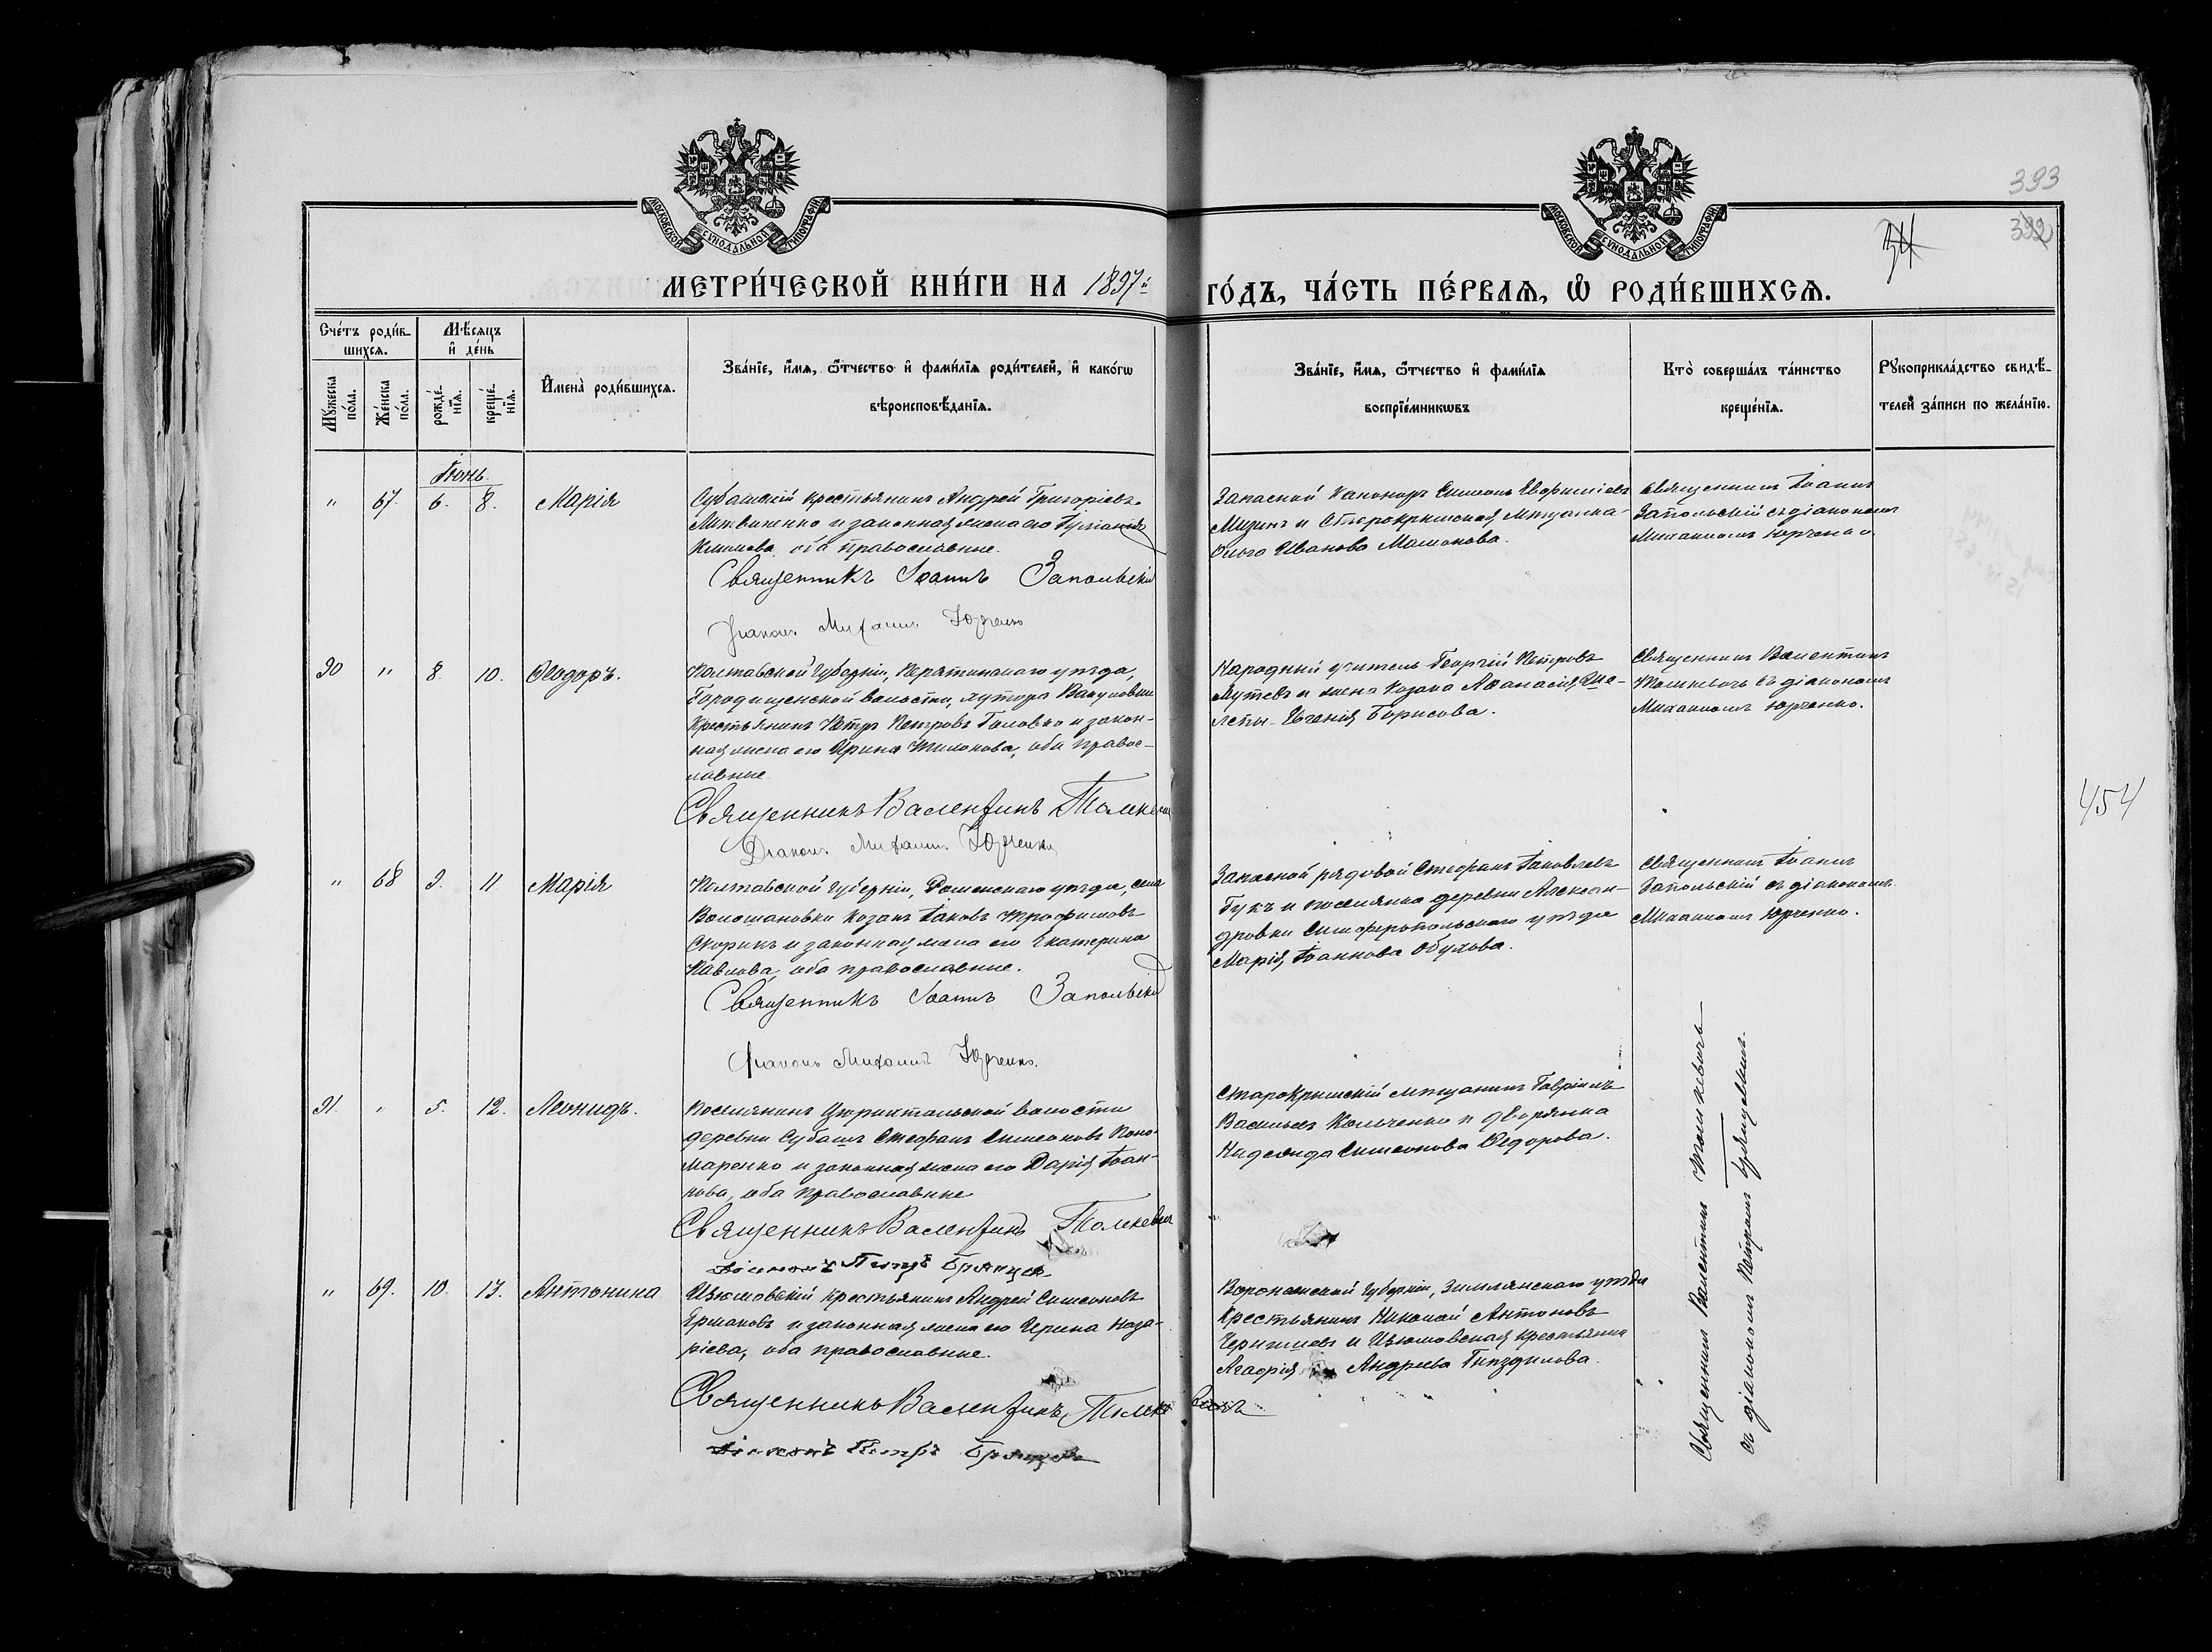 МОСКОВСКОЙ СѴНОДАЛЬНОЙ ТИПОГРАФІИ
МОСКОВСКОЙ СѴНОДАЛЬНОЙ ТИПОГРАФІИ
393
392
МЕТРИ́ЧЕСКОЙ КНИ́ГИ НА 1897й ГО́ДЪ, ЧА́СТЬ ПЕ́РВАѦ, Ѡ҆ РОДИ́ВШИХСѦ.
Сче́тъ роди́в-
шихсѧ.
Мꙋ́жеска по́ла.
Же́нска по́ла.
Мѣ́сѧцъ
и҆ де́нь
рожде́-
нїѧ.
креще́-
нїѧ.
И҆мена̀ роди́вшихсѧ.
Зва́нїе, и҆́мѧ, ѻ҆́тчество и҆ фами́лїѧ роди́телей, и҆ како́гѡ
вѣроисповѣ́данїѧ.
Зва́нїе, и҆́мѧ, ѻ҆́тчество и҆ фами́лїѧ
воспрїе́мникѡвъ
Кто̀ соверша́лъ та́инство
креще́нїѧ.
Рꙋкоприкла́дство свидѣ́-
телей за́писи по жела́нїю.
Іюнь
" 67. 6. 8. Марія
Субашскій крестьянинъ Андрей Григоріевъ
Литвиненко и законная жена его
Климова, оба православные.
Священникъ Іоаннъ Запольскій
Діаконъ Михаилъ Юрченко
Запасной Канониръ Симеонъ Евфиміевъ
Мизинъ и Старокрымская Мѣщанка
Ольга Иванова Машонова.
Священникъ Іоаннъ
Запольскій съ діакономъ
Михаиломъ Юрченко.
90 " 8. 10. Ѳеодоръ.
Полтавской Губерніи, Пирятинскаго уѣзда,
Городищенской волости, хутора
Крестьянинъ Петръ Петровъ Головко и закон-
ная жена его Ирина Тихонова, оба правос-
лавные
Священникъ Валентинъ Томкевичъ
Діаконъ Михаилъ Юрченко
Народный учитель Георгій Петровъ
и жена Козака Аѳанасія
Евгенія Борисова.
Священникъ Валентинъ
Томкевичъ съ діакономъ
Михаиломъ Юрченко.
454
" 68 9. 11 Марія
Полтавской Губерніи, Роменскаго уѣзда, села
Волошановки козакъ Іаковъ Трофимовъ
Скоринъ и законная жена его Екатерина
Павлова, оба православные.
Священникъ Іоаннъ Запольскій
Діаконъ Михаилъ Юрченко.
Запасной рядовой Стефанъ Іаковлевъ
Гукъ и поселянка деревни Алексан-
дровки Симферопольскаго уѣзда
Марія Іоаннова Обухова.
Священникъ Іоаннъ
Запольскій съ діакономъ
Михаиломъ Юрченко.
91. " 5. 12. Леонидъ.
Поселянинъ Цюрихтальской волости
деревни Субашъ Стефанъ Симеоновъ Поно-
маренко и законная жена его Дарія Іоан-
нова, оба православные
Священникъ Валентинъ Томкевичъ
Діаконъ Петръ
Старокрымскій мѣщанинъ Гавріилъ
Васильевъ Кольченко и дворянка
Надежда Симеонова Ѳедорова.
" 69. 10. 13. Антонина
Изюмовскій крестьянинъ Андрей Симеоновъ
Ермаковъ и законная жена его Ирина Наза-
ріева, оба православные.
Священникъ Валентинъ Томкевичъ
Діаконъ Петръ
Воронежской Губерніи, Землянскаго уѣзда
Крестьянинъ Николай Антоновъ
Чернышевъ и Изюмовская крестьянка
Агафія Андреева Гнѣздилова.
Священникъ Валентинъ Томкевичъ
съ діакономъ Петромъ